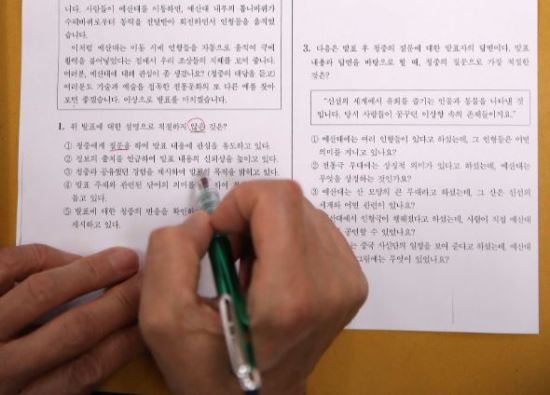 니다. 사람들이 예산대를 이동하면, 예산대 내부의 톱니바퀴가
수레바퀴로부터 동력을 전달받아 회전하면서 인형들을 움직였
습니다.
이처럼 예산대는 이동 시에 인형들을 자동으로 움직여 극에
활력을 불어넣었다는 점에서 우리 조상들의 지혜를 보여 줍니다.
여러분, 예산대에 대해 관심이 좀 생겼나요? (청중의 대답을 듣고)
여러분도 기술과 예술을 접목한 전통문화의 또 다른 예를 찾아
보면 좋겠습니다. 이상으로 발표를 마치겠습니다.
1. 위 발표에 대한 설명으로 적절하지 않은 것은?
① 청중에게 질문을 하여 발표 내용에 관심을 유도하고 있다.
② 정보의 출처를 언급하여 발표 내용의 신뢰성을 높이고 있다.
③ 청중과 공유했던 경험을 제시하여 발표의 목적을 밝히고 있다.
④ 발표 주제와 관련된 단어의 의미를
⑤ 발표에 대한 청중의 반응을 확인하
제시하고 있다.
3. 다음은 발표 후 청중의 질문에 대한 발표자의 답변이다. 발표
내용과 답변을 바탕으로 할 때, 청중의 질문으로 가장 적절한
것은?
"신선의 세계에서 유희를 즐기는 인물과 동물을 나타낸 것
입니다. 당시 사람들이 꿈꾸던 이상향 속의 존재들이지요."
① 예산대에는 여러 인형들이 있다고 하셨는데, 그 인형들은 어떤
의미를 지니고 있나요?
② 전통극 무대에는 상징적 의미가 있다고 하셨는데, 예산대는
무엇을 상징하는 것인가요?
③ 예산대는 산 모양의 큰 무대라고 하셨는데, 그 산은 신선의
세계와 어떤 관련이 있나요?
예산대에서 인형극이 행해졌다고 하셨는데, 사람이 직접 예산대
공연할 수 있었나요?
는 중국 사신단의 일정을 보여 준다고 하셨는데, 예산대
그림에는 무엇이 있었나요?